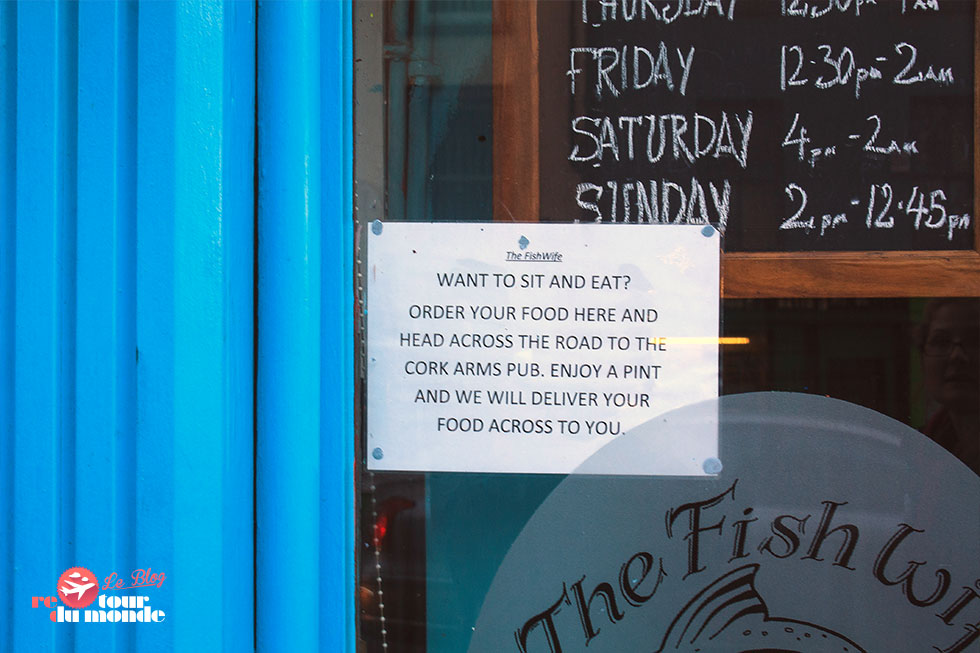 THURSDAY
FRIDAY 12·30pm-2am
SATURDAY 4pm-2am
SUNDAY 2pm-12·45pm
The FishWife
WANT TO SIT AND EAT?
ORDER YOUR FOOD HERE AND
HEAD ACROSS THE ROAD TO THE
CORK ARMS PUB. ENJOY A PINT
AND WE WILL DELIVER YOUR
FOOD ACROSS TO YOU.
The Fish Wife
Le Blog
re tour
du monde